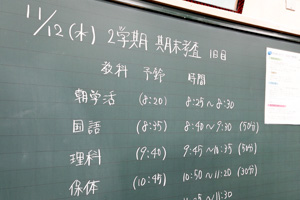 11/12(水) 2学期 期末考査 1日目
教科 予鈴 時間
朝学活 (8:20) 8:25〜8:30
国語 (8:35) 8:40〜9:30 (50分)
理科 (9:40) 9:45〜10:35 (50分)
保体 (10:45) 10:50〜11:20 (30分)
11:30